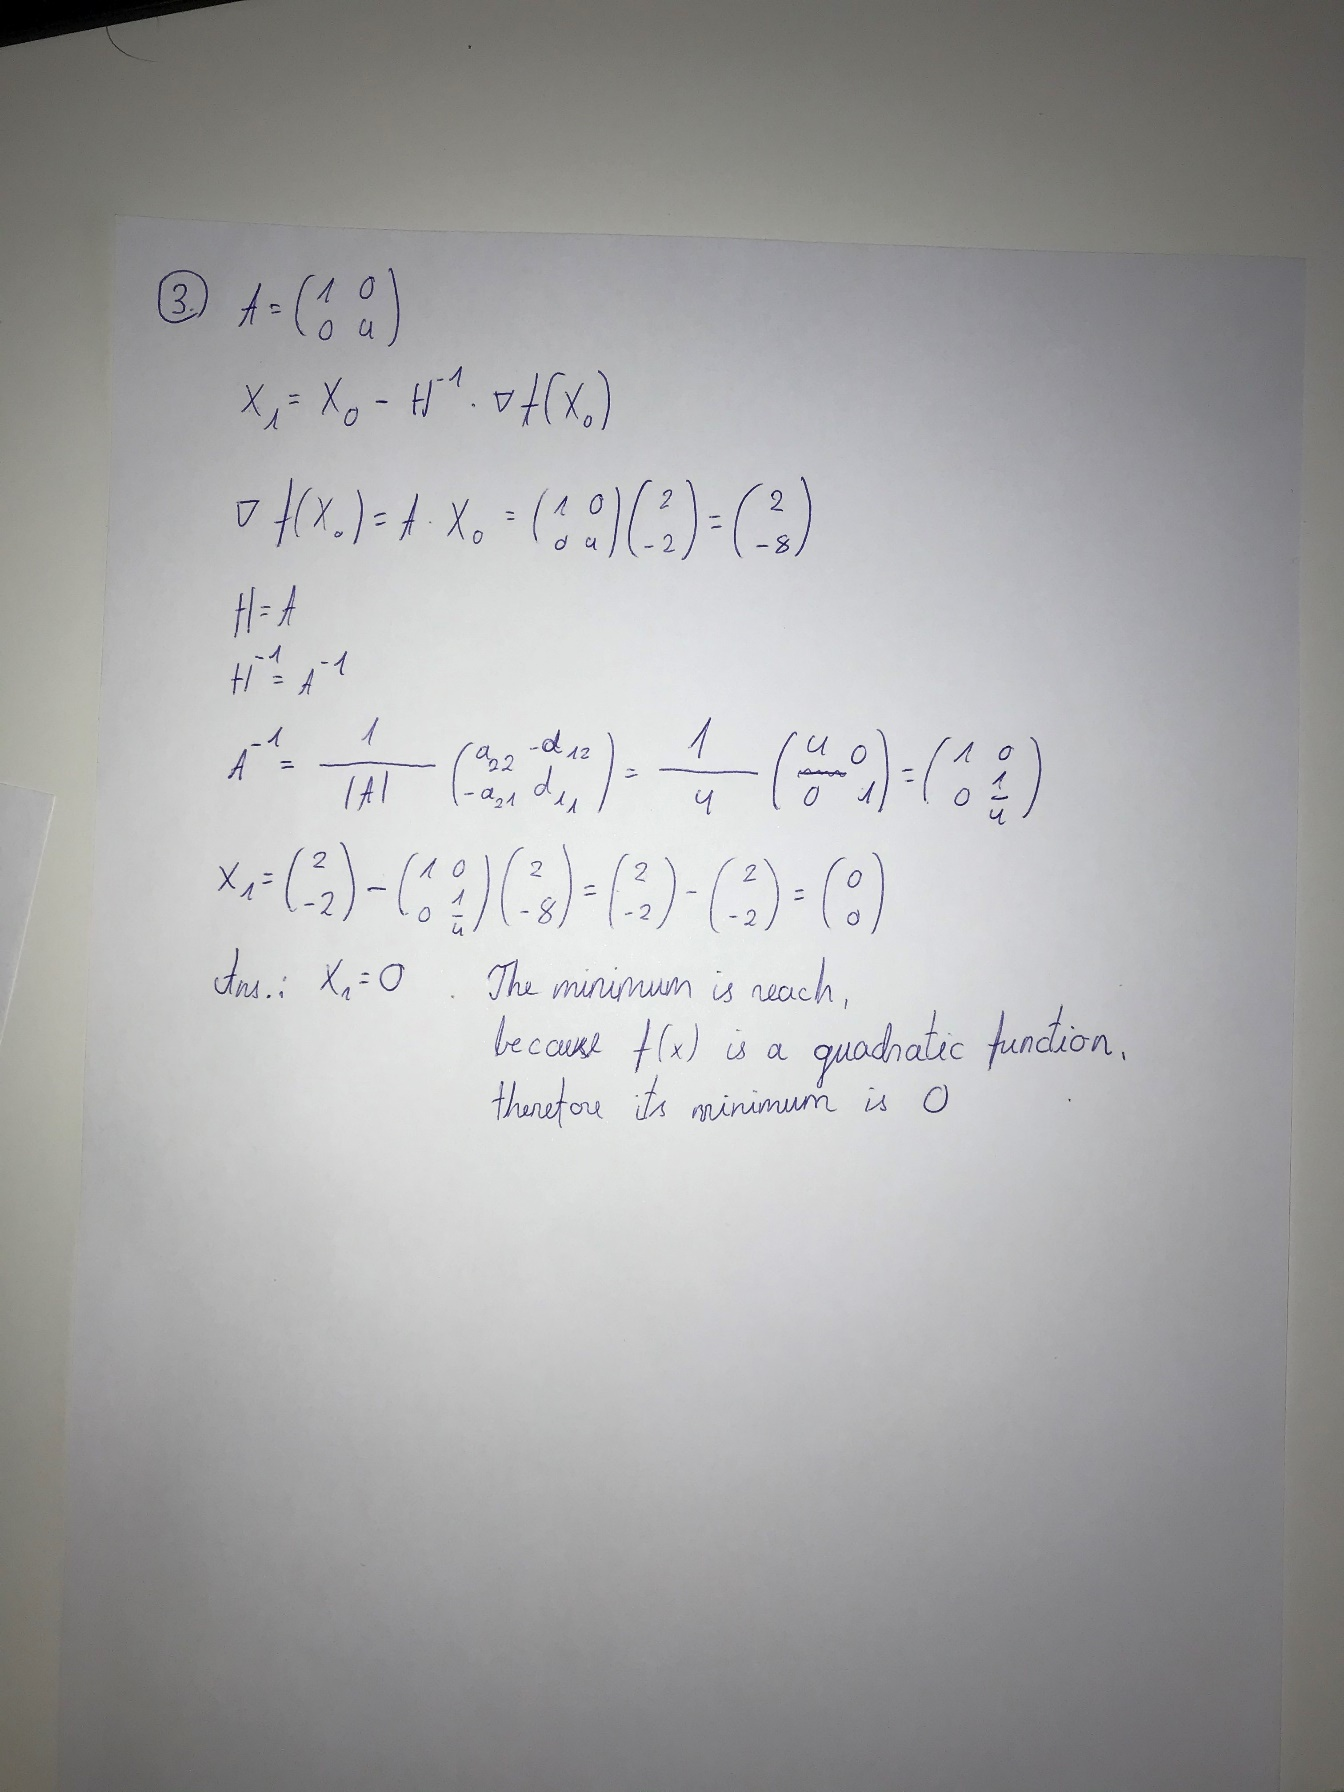 3. A = (1 0; 0 4)
X₁ = X₀ - H⁻¹ · ∇f(X₀)
∇f(X₀) = A · X₀ = (1 0; 0 4)(2; -2) = (2; -8)
H = A
H⁻¹ = A⁻¹
A⁻¹ = 1/|A| (a₂₂ -a₁₂; -a₂₁ a₁₁) = 1/4 (4 0; 0 1) = (1 0; 0 1/4)
X₁ = (2; -2) - (1 0; 0 1/4)(2; -8) = (2; -2) - (2; -2) = (0; 0)
Ans.: X₁ = 0. The minimum is reach,
because f(x) is a quadratic function,
therefore its minimum is 0